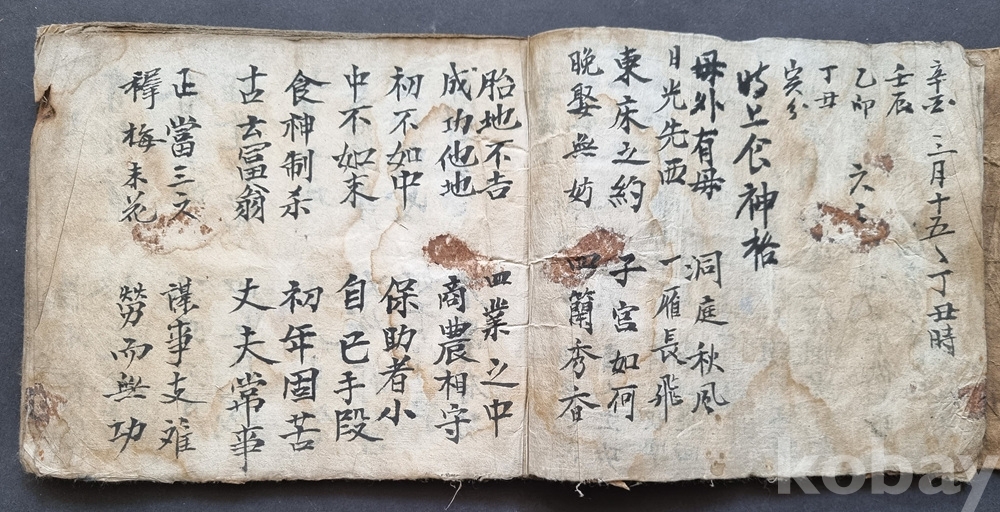 辛亥 三月十五〻丁丑時
壬辰
乙卯
丁丑
癸
時上食神格
毋外有毋 洞庭秋風
日光先西 一雁長飛
東床之約 子宮如何
晩娶無妨 四蘭秀香
胎地不吉 四業之中
成功他地 商農相守
初不如中 保助者小
中不如末 自己手段
食神制杀 初年困苦
古云富翁 丈夫常事
正當三 謀事支难
梅未花 勞而無功
kobay